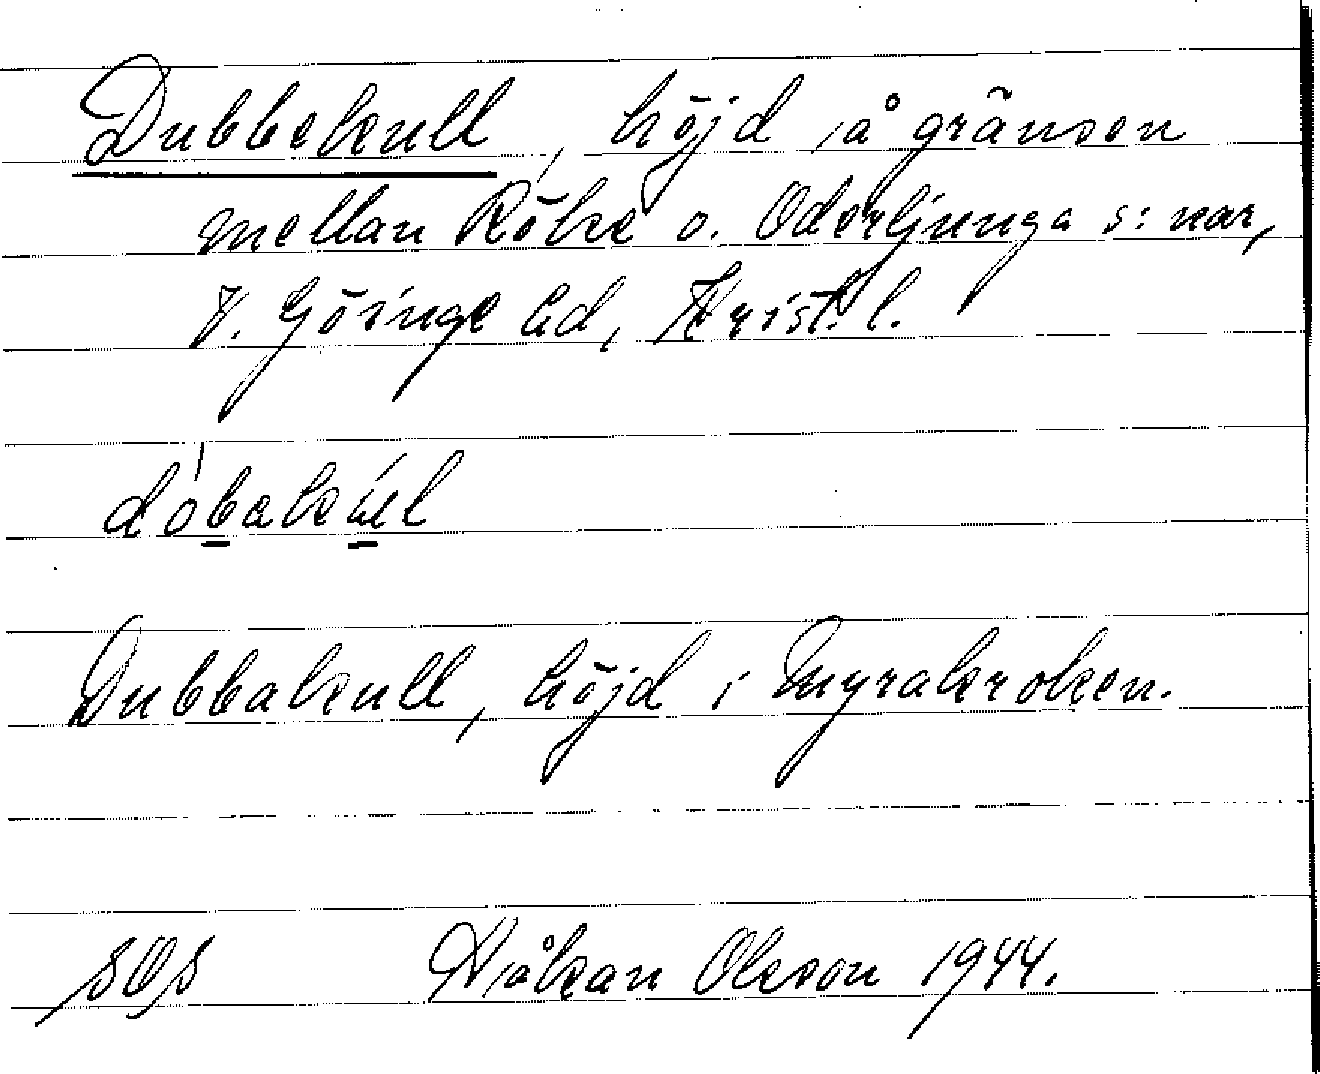 Dubbekull, höjd å gränsen
mellan Röke o. Oderljunga s:nar,
V. Göinge hd, Krist. l.
dobakul
Dubbakull, höjd i Myrakroken.
SOS Håkan Olsson 1944.